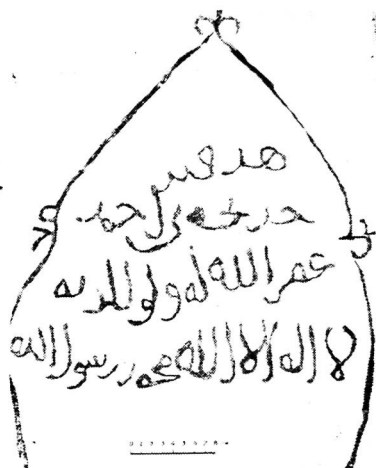 هذ قبر
خديجه احمد
غفر الله له ولوالديه
لا اله الا الله محمد رسول الله